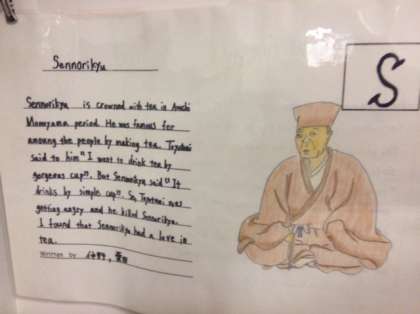 Sennorikyu
S
Sennorikyu is crowned with tea in Azuchi
Momoyama period. He was famous for
among the people by making tea. Toyotomi
said to him "I want to drink tea by
gorgeous cup". But Sennorikyu said "It
drinks by simple cup". So, Toyotomi was
getting angry and he killed Sennorikyu.
I found that Sennorikyu had a love in
tea.
Written by